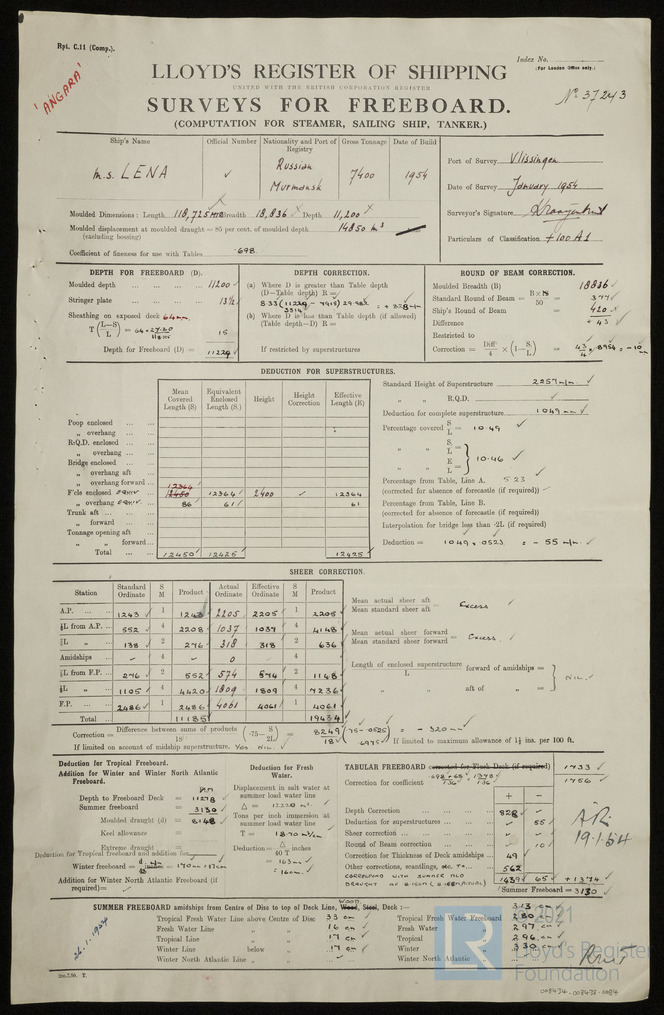 Rpt. C.11 (Comp.).
'ANGARA'
Index No.
(For London Office only.)
LLOYD'S REGISTER OF SHIPPING
UNITED WITH THE BRITISH CORPORATION REGISTER
SURVEYS FOR FREEBOARD.
(COMPUTATION FOR STEAMER, SAILING SHIP, TANKER.)
No 37243
Ship's Name Official Number Nationality and Port of Registry Gross Tonnage Date of Build
m.s. LENA Russian Murmansk 7400 1954
Port of Survey Vlissingen
Date of Survey January 1954
Surveyor's Signature
Particulars of Classification +100A1
Moulded Dimensions: Length 118,725 Breadth 18,836 Depth 11,200
Moulded displacement at moulded draught = 85 per cent. of moulded depth 14850 m³
(excluding bossing)
Coefficient of fineness for use with Tables .698
DEPTH FOR FREEBOARD (D).
Moulded depth 11200
Stringer plate 13½
Sheathing on exposed deck 64mm
T (L-S/L) = 15
Depth for Freeboard (D) = 11229
DEPTH CORRECTION.
(a) Where D is greater than Table depth
(D-Table depth) R=
(b) Where D is less than Table depth (if allowed)
(Table depth-D) R =
If restricted by superstructures
ROUND OF BEAM CORRECTION.
Moulded Breadth (B) 18836
Standard Round of Beam = B×12/50 = 377
Ship's Round of Beam = 420
Difference = 43
Restricted to
Correction = Diff/4 × (1-S/L) = 43/4 × .8954 = -10
DEDUCTION FOR SUPERSTRUCTURES.
Mean Covered Length (S) Equivalent Enclosed Length (S₁) Height Height Correction Effective Length (E)
Poop enclosed
" overhang
R.Q.D. enclosed
" overhang
Bridge enclosed
" overhang aft
" overhang forward
12364
F'cle enclosed equiv. 12450 12364 2400 12364
" overhang equiv. 86 61 61
Trunk aft
" forward
Tonnage opening aft
" " forward
Total 12450 12425 12425
Standard Height of Superstructure 2257 m/m
" " R.Q.D.
Deduction for complete superstructure 1049 mm
Percentage covered S/L = 10.49
" " S₁/L =
" " E/L = 10.46
Percentage from Table, Line A. 5.23
(corrected for absence of forecastle (if required))
Percentage from Table, Line B.
(corrected for absence of forecastle (if required))
Interpolation for bridge less than ·2L (if required)
Deduction = 1049 × .0523 = - 55 m/m.
SHEER CORRECTION.
Station Standard Ordinate S M Product Actual Ordinate Effective Ordinate S M Product
A.P. 1243 1 1243 2205 2205 1 2205
⅙L from A.P. 552 4 2208 1037 1037 4 4148
⅓L " 138 2 276 318 318 2 636
Amidships 4 0 4
⅓L from F.P. 276 2 552 574 574 2 1148
⅙L " 1105 4 4420 1809 1809 4 7236
F.P. 2486 1 2486 4061 4061 1 4061
Total 11185 19434
Mean actual sheer aft
Mean standard sheer aft = Excess
Mean actual sheer forward
Mean standard sheer forward = Excess
Length of enclosed superstructure forward of amidships =
L
" " aft of " = Nil.
Correction = Difference between sums of products/18 (·75-S/2L) = 8249/18 (.75-.0525) = - 320 mm
If limited on account of midship superstructure. If limited to maximum allowance of 1½ ins. per 100 feet.
Deduction for Tropical Freeboard.
Addition for Winter and Winter North Atlantic Freeboard.
Depth to Freeboard Deck = 11278
Summer freeboard = 3130
Moulded draught (d) = 8148
Keel allowance =
Extreme draught =
Deduction for Tropical freeboard and addition for
Winter freeboard =
Addition for Winter North Atlantic Freeboard (if required) =
Deduction for Fresh Water.
Displacement in salt water at summer load water line
Δ = 12220 m³.
Tons per inch immersion at summer load water line
T = 18.70
Deduction = Δ/40 T inches
= 163mm
= 16cm.
TABULAR FREEBOARD corrected for Flush Deck (if required) 1733
Correction for coefficient 1756
+ -
Depth Correction 828
Deduction for superstructures 55
Sheer correction
Round of Beam correction 10
Correction for Thickness of Deck amidships 49
Other corrections, scantlings, etc. 562
CORRESPOND WITH SUMMER MLD
1439 65 +1374
Summer Freeboard = 3130
19.1.54
SUMMER FREEBOARD amidships from Centre of Disc to top of Deck Line, Wood, Steel, Deck :—
WOOD.
313 cm
Tropical Fresh Water Line above Centre of Disc 33 cm Tropical Fresh Water Freeboard 280 cm
Fresh Water Line " " 16 cm Fresh Water " 297 cm
Tropical Line " " 17 cm Tropical " 296 cm
Winter Line below " 17 cm Winter " 330 cm
Winter North Atlantic Line " " Winter North Atlantic "
26.1.1954
© 2021
LR
Lloyd's Register
Foundation
008434-008438-0084